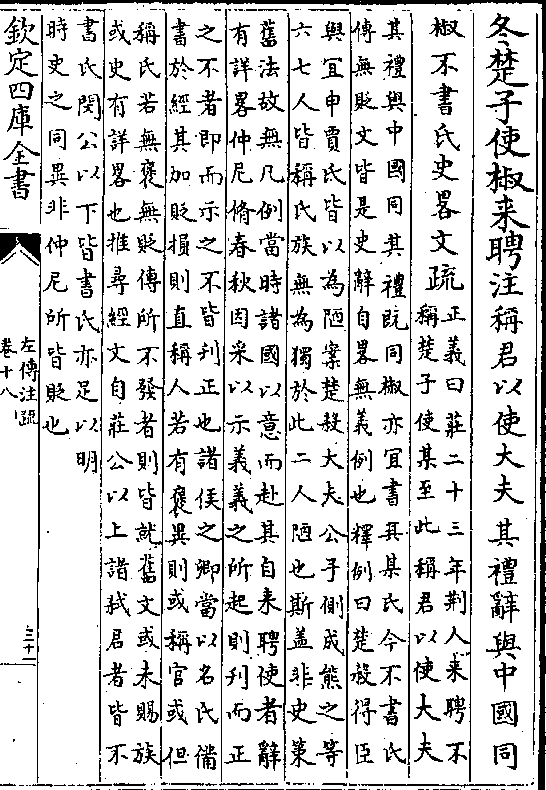 冬楚子使椒来聘注稱君以使大夫其禮辭與中國同
椒不書氏史畧文疏
正義曰莊二十三年荆人来聘不
稱楚子使某至此稱君以使大夫
其禮與中國同其禮既同椒亦宜書其某氏今不書氏
傳無貶文皆是史辭自畧無義例也釋例曰楚殺得臣
與宜申賈氏皆以為陋案楚殺大夫公子側成熊之等
六七人皆稱氏族無為獨於此二人陋也斯盖非史策
舊法故無凡例當時諸國以意而赴其自来聘使者辭
有詳畧仲尼脩春秋因采以示義義之所起則刋而正
之不者即而示之不皆刋正也諸侯之卿當以名氏備
書於經其加貶損則直稱人若有褒異則或稱官或但
稱氏若無褒無貶傳所不發者則皆就舊文或未賜族
或史有詳畧也推尋經文自莊公以上諸弑君者皆不
書氏閔公以下皆書氏亦足以明
時史之同異非仲尼所皆貶也
欽定四庫全書
左傳注疏
卷十八
三十一